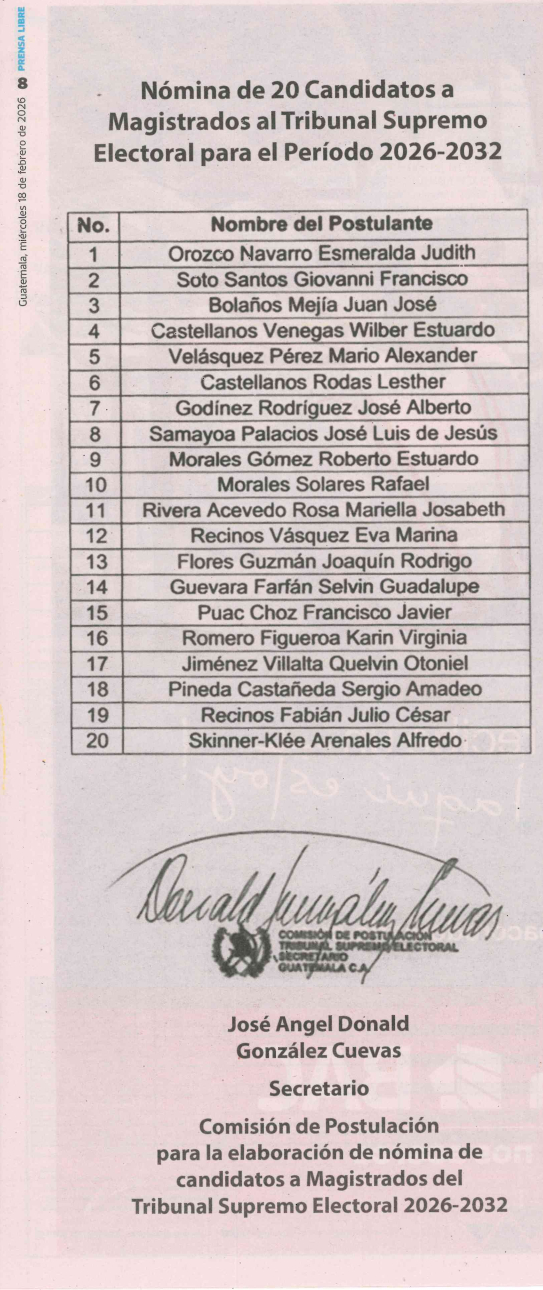 Guatemala, miércoles 18 de febrero de 2026 8 PRENSA LIBRE
Nómina de 20 Candidatos a
Magistrados al Tribunal Supremo
Electoral para el Período 2026-2032
No. Nombre del Postulante
1 Orozco Navarro Esmeralda Judith
2 Soto Santos Giovanni Francisco
3 Bolaños Mejía Juan José
4 Castellanos Venegas Wilber Estuardo
5 Velásquez Pérez Mario Alexander
6 Castellanos Rodas Lesther
7 Godínez Rodríguez José Alberto
8 Samayoa Palacios José Luis de Jesús
9 Morales Gómez Roberto Estuardo
10 Morales Solares Rafael
11 Rivera Acevedo Rosa Mariella Josabeth
12 Recinos Vásquez Eva Marina
13 Flores Guzmán Joaquín Rodrigo
14 Guevara Farfán Selvin Guadalupe
15 Puac Choz Francisco Javier
16 Romero Figueroa Karin Virginia
17 Jiménez Villalta Quelvin Otoniel
18 Pineda Castañeda Sergio Amadeo
19 Recinos Fabián Julio César
20 Skinner-Klée Arenales Alfredo
¡aquí estoy!
Donald González Cuevas
COMISIÓN DE POSTULACIÓN
TRIBUNAL SUPREMO ELECTORAL
SECRETARIO
GUATEMALA C.A.
José Angel Donald
González Cuevas
Secretario
Comisión de Postulación
para la elaboración de nómina de
candidatos a Magistrados del
Tribunal Supremo Electoral 2026-2032